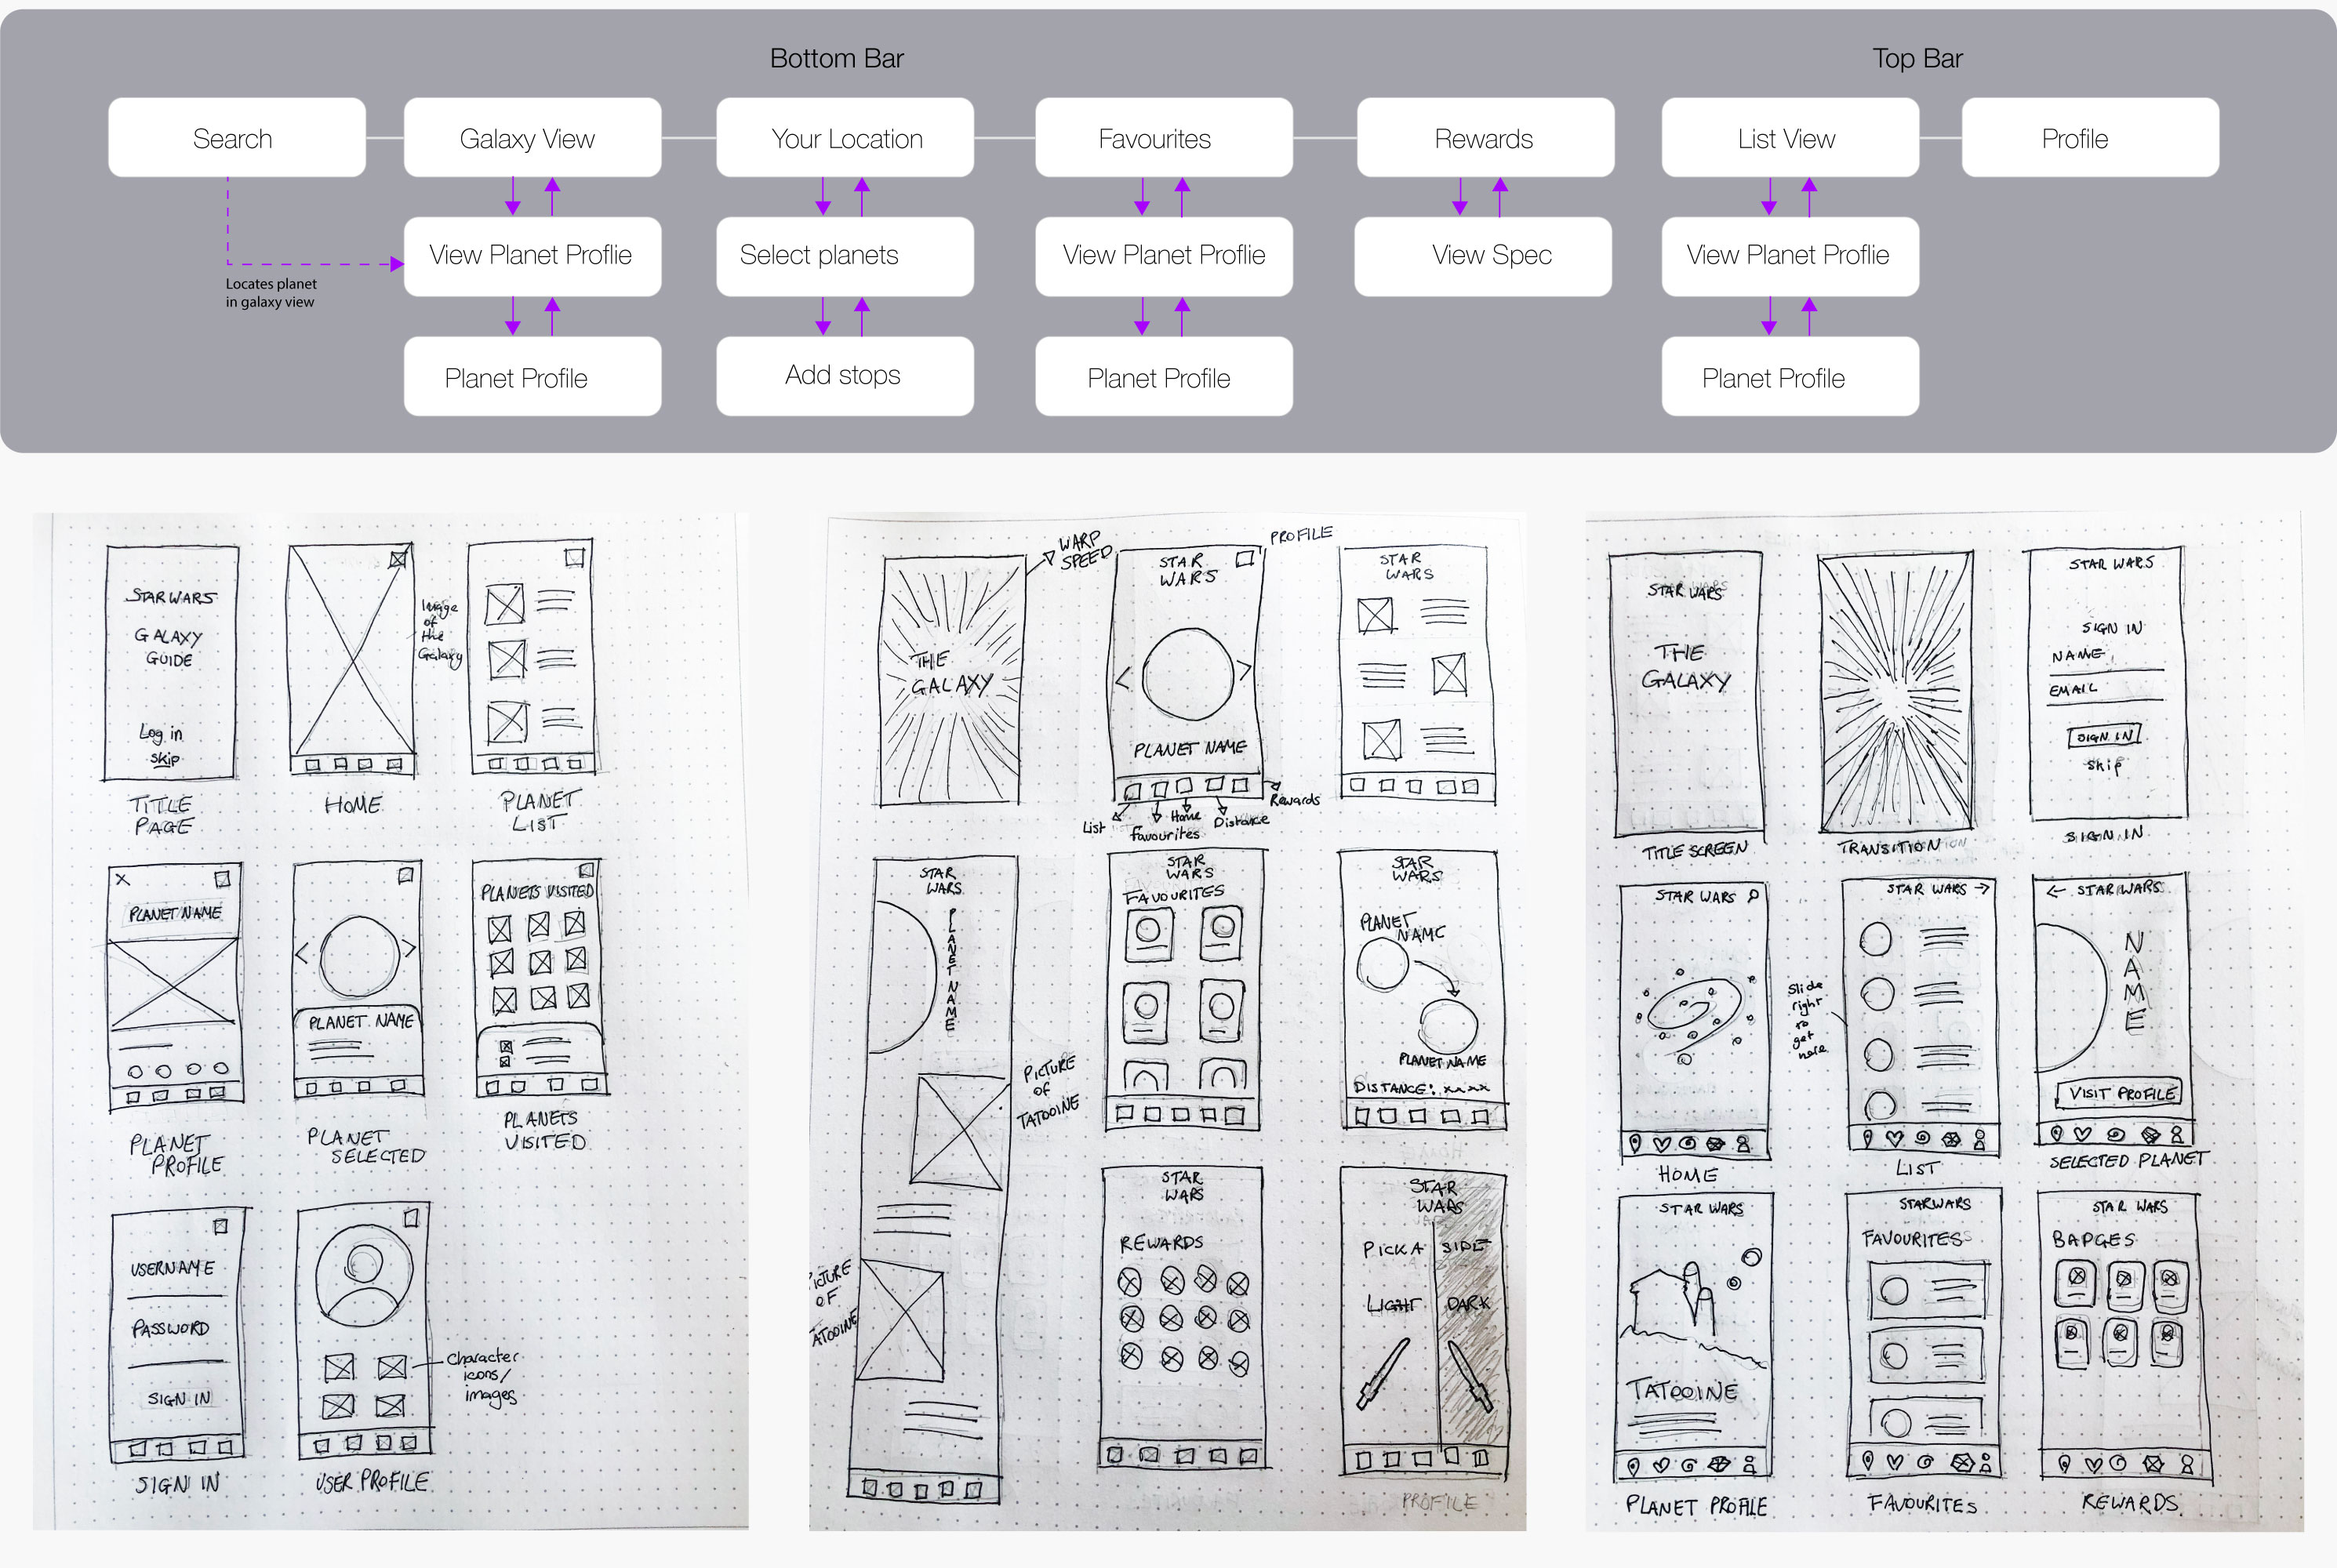 Bottom Bar
Top Bar
Search
Galaxy View
Your Location
Favourites
Rewards
List View
Profile
View Planet Proflie
Select planets
View Planet Proflie
View Spec
View Planet Proflie
Locates planet
in galaxy view
Planet Profile
Add stops
Planet Profile
Planet Profile
STAR WARS
GALAXY
GUIDE
Log in
skip
TITLE
PAGE
HOME
Image
of
the
Galaxy
PLANET
LIST
X
PLANET NAME
PLANET
PROFILE
< >
PLANET NAME
PLANET
SELECTED
PLANETS VISITED
PLANETS
VISITED
USERNAME
PASSWORD
SIGN IN
SIGN IN
Character
icons/
images
USER PROFILE
THE
GALAXY
WARP
SPEED
STAR
WARS
PROFILE
< >
PLANET NAME
List
Favourites
Home
Distance
Rewards
STAR
WARS
STAR
WARS
PLANET NAME
PICTURE
OF
TATOOINE
PICTURE
OF
TATOOINE
STAR
WARS
FAVOURITES
STAR
WARS
PLANET
NAME
PLANET NAME
DISTANCE: xxxx
STAR
WARS
REWARDS
STAR
WARS
PICK A SIDE
LIGHT DARK
PROFILE
STAR WARS
THE
GALAXY
TITLE SCREEN
TRANSITION
STAR WARS
SIGN IN
NAME
EMAIL
SIGN IN
Skip
SIGN IN
STAR WARS
HOME
Slide
right
to
get
here
STAR WARS →
LIST
← STAR WARS
NAME
VISIT PROFILE
SELECTED PLANET
STAR WARS
TATOOINE
PLANET PROFILE
STARWARS
FAVOURITES
FAVOURITES
STAR WARS
BADGES
REWARDS